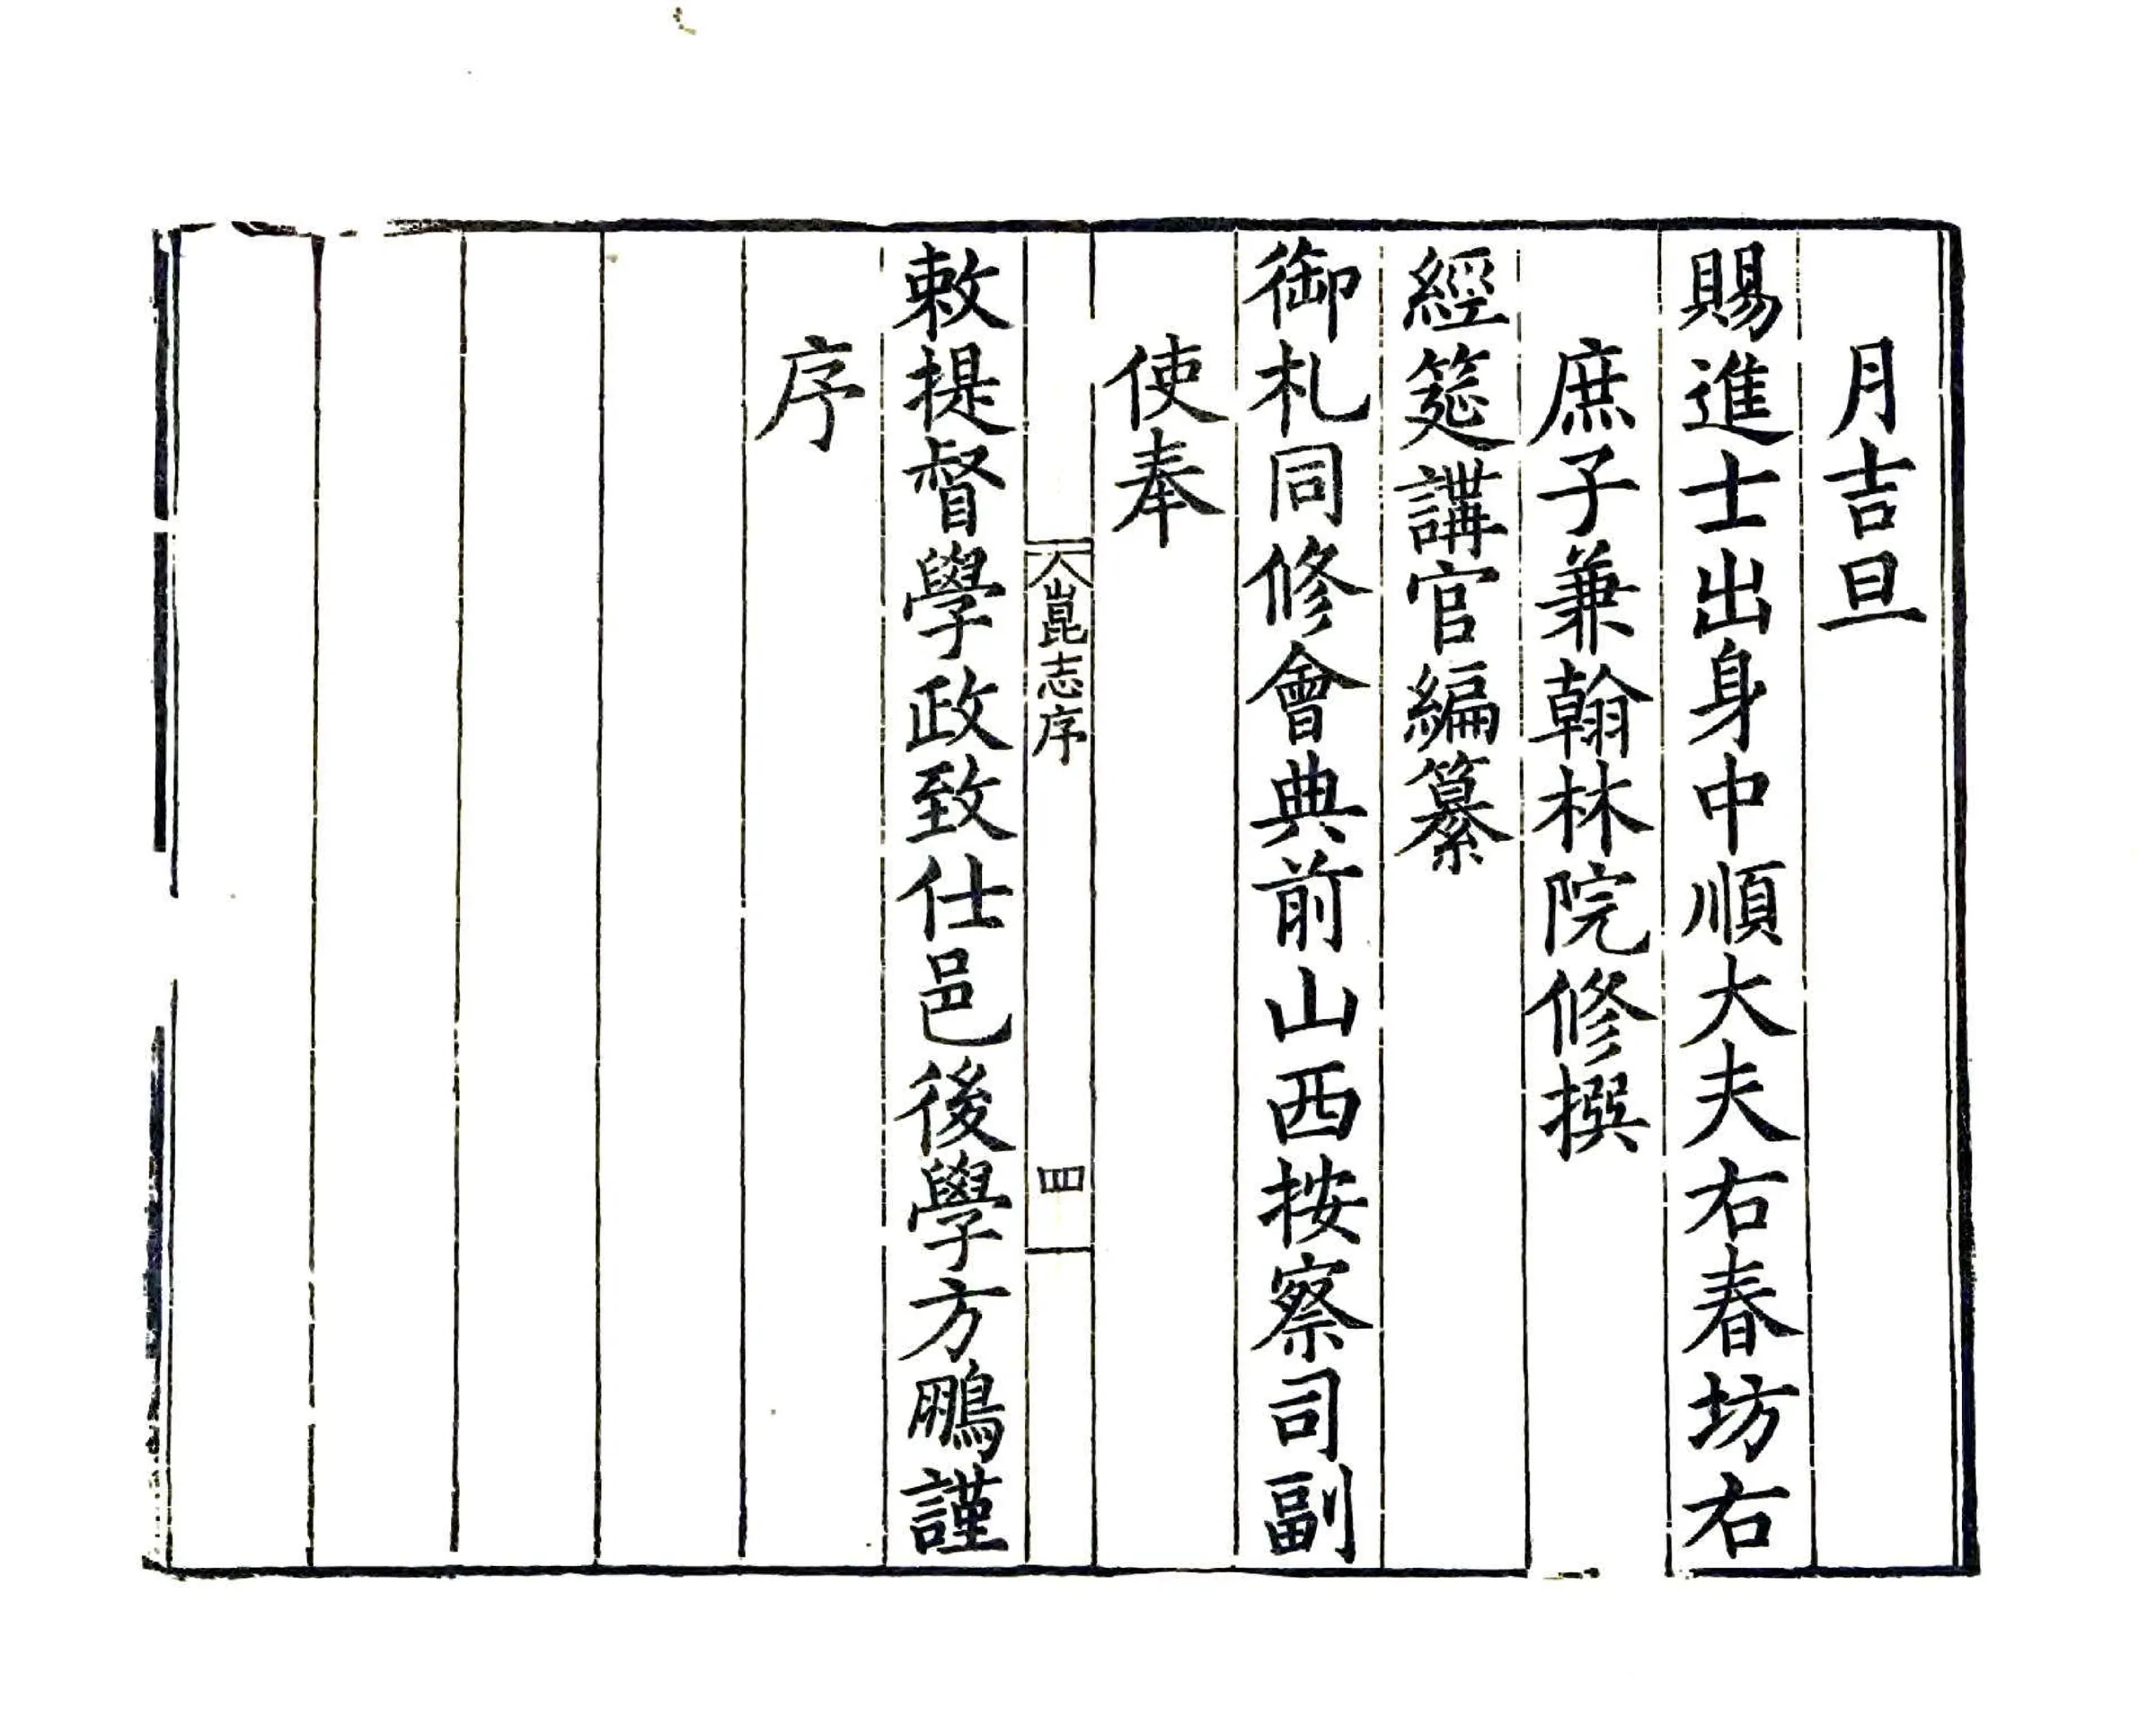 月吉旦
賜進士出身中順大夫右春坊右
庶子兼翰林院修撰
經筵講官編纂
御札同修會典前山西按察司副
使奉
崑志序
四
敕提督學政致仕邑後學方鵬謹
序